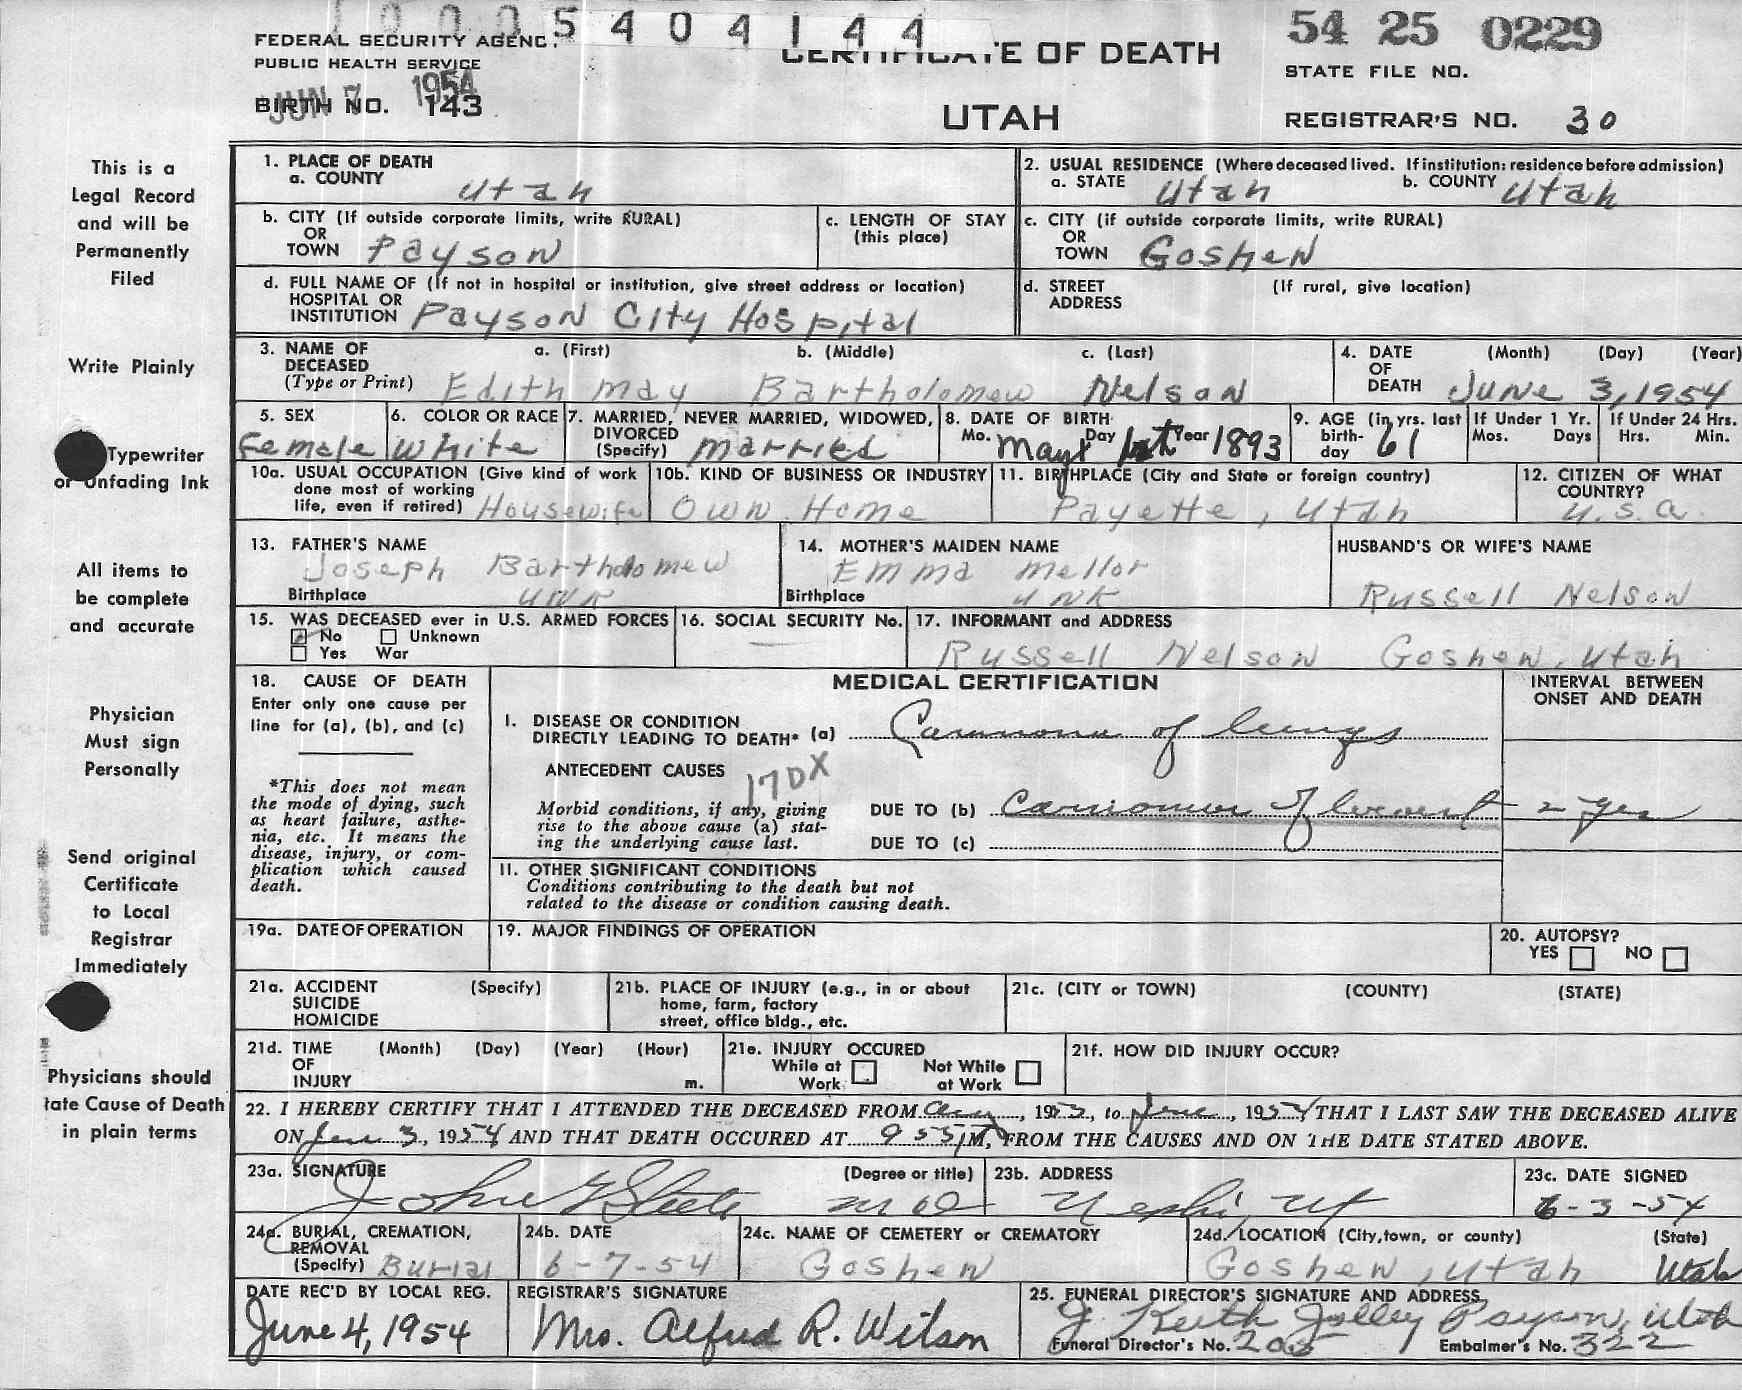 10005404144
54 25 0229
FEDERAL SECURITY AGENC.
CERTIFICATE OF DEATH
PUBLIC HEALTH SERVICE
STATE FILE NO.
JUN 7 1954
BIRTH NO. 143
UTAH
REGISTRAR'S NO. 30
This is a
Legal Record
and will be
Permanently
Filed
Write Plainly
Typewriter
or Unfading Ink
All items to
be complete
and accurate
Physician
Must sign
Personally
Send original
Certificate
to Local
Registrar
Immediately
Physicians should
tate Cause of Death
in plain terms
1. PLACE OF DEATH
a. COUNTY Utah
2. USUAL RESIDENCE (Where deceased lived. If institution: residence before admission)
a. STATE Utah b. COUNTY Utah
b. CITY (If outside corporate limits, write RURAL)
OR
TOWN Payson
c. LENGTH OF STAY
(this place)
c. CITY (if outside corporate limits, write RURAL)
OR
TOWN Goshen
d. FULL NAME OF (If not in hospital or institution, give street address or location)
HOSPITAL OR
INSTITUTION Payson City Hospital
d. STREET (If rural, give location)
ADDRESS
3. NAME OF a. (First) b. (Middle) c. (Last)
DECEASED
(Type or Print) Edith May Bartholomew Nelson
4. DATE (Month) (Day) (Year)
OF
DEATH June 3, 1954
5. SEX
Female
6. COLOR OR RACE
White
7. MARRIED, NEVER MARRIED, WIDOWED,
DIVORCED
(Specify) Married
8. DATE OF BIRTH
Mo. Day Year
May 1893
9. AGE (in yrs. last
birth-
day 61
If Under 1 Yr.
Mos. Days
If Under 24 Hrs.
Hrs. Min.
10a. USUAL OCCUPATION (Give kind of work
done most of working
life, even if retired) Housewife
10b. KIND OF BUSINESS OR INDUSTRY
Own Home
11. BIRTHPLACE (City and State or foreign country)
Fayette, Utah
12. CITIZEN OF WHAT
COUNTRY?
U.S.A.
13. FATHER'S NAME
Joseph Bartholomew
Birthplace UNK
14. MOTHER'S MAIDEN NAME
Emma Mellor
Birthplace UNK
HUSBAND'S OR WIFE'S NAME
Russell Nelson
15. WAS DECEASED ever in U.S. ARMED FORCES
No Unknown
Yes War
16. SOCIAL SECURITY No.
—
17. INFORMANT and ADDRESS
Russell Nelson Goshen, Utah
18. CAUSE OF DEATH
Enter only one cause per
line for (a), (b), and (c)
*This does not mean
the mode of dying, such
as heart failure, asthe-
nia, etc. It means the
disease, injury, or com-
plication which caused
death.
MEDICAL CERTIFICATION
INTERVAL BETWEEN
ONSET AND DEATH
I. DISEASE OR CONDITION
DIRECTLY LEADING TO DEATH* (a) Carcinoma of lungs
ANTECEDENT CAUSES
170X
Morbid conditions, if any, giving
rise to the above cause (a) stat-
ing the underlying cause last.
DUE TO (b) Carcinoma of breast 2 yrs
DUE TO (c)
II. OTHER SIGNIFICANT CONDITIONS
Conditions contributing to the death but not
related to the disease or condition causing death.
19a. DATE OF OPERATION
19. MAJOR FINDINGS OF OPERATION
20. AUTOPSY?
YES NO
21a. ACCIDENT (Specify)
SUICIDE
HOMICIDE
21b. PLACE OF INJURY (e.g., in or about
home, farm, factory
street, office bldg., etc.
21c. (CITY or TOWN) (COUNTY) (STATE)
21d. TIME (Month) (Day) (Year) (Hour)
OF
INJURY m.
21e. INJURY OCCURED
While at Work Not While at Work
21f. HOW DID INJURY OCCUR?
22. I HEREBY CERTIFY THAT I ATTENDED THE DECEASED FROM , 1953, to June, 1954 THAT I LAST SAW THE DECEASED ALIVE
ON June 3, 1954 AND THAT DEATH OCCURED AT 9 55 P M, FROM THE CAUSES AND ON THE DATE STATED ABOVE.
23a. SIGNATURE (Degree or title)
John G Steele MD
23b. ADDRESS
Nephi, Ut
23c. DATE SIGNED
6-3-54
24a. BURIAL, CREMATION,
REMOVAL
(Specify) Burial
24b. DATE
6-7-54
24c. NAME OF CEMETERY or CREMATORY
Goshen
24d. LOCATION (City, town, or county) (State)
Goshen, Utah Utah
DATE REC'D BY LOCAL REG.
June 4, 1954
REGISTRAR'S SIGNATURE
Mrs. Alfred R. Wilson
25. FUNERAL DIRECTOR'S SIGNATURE AND ADDRESS
J. Keith Jolley Payson, Utah
Funeral Director's No. 205 Embalmer's No. 322